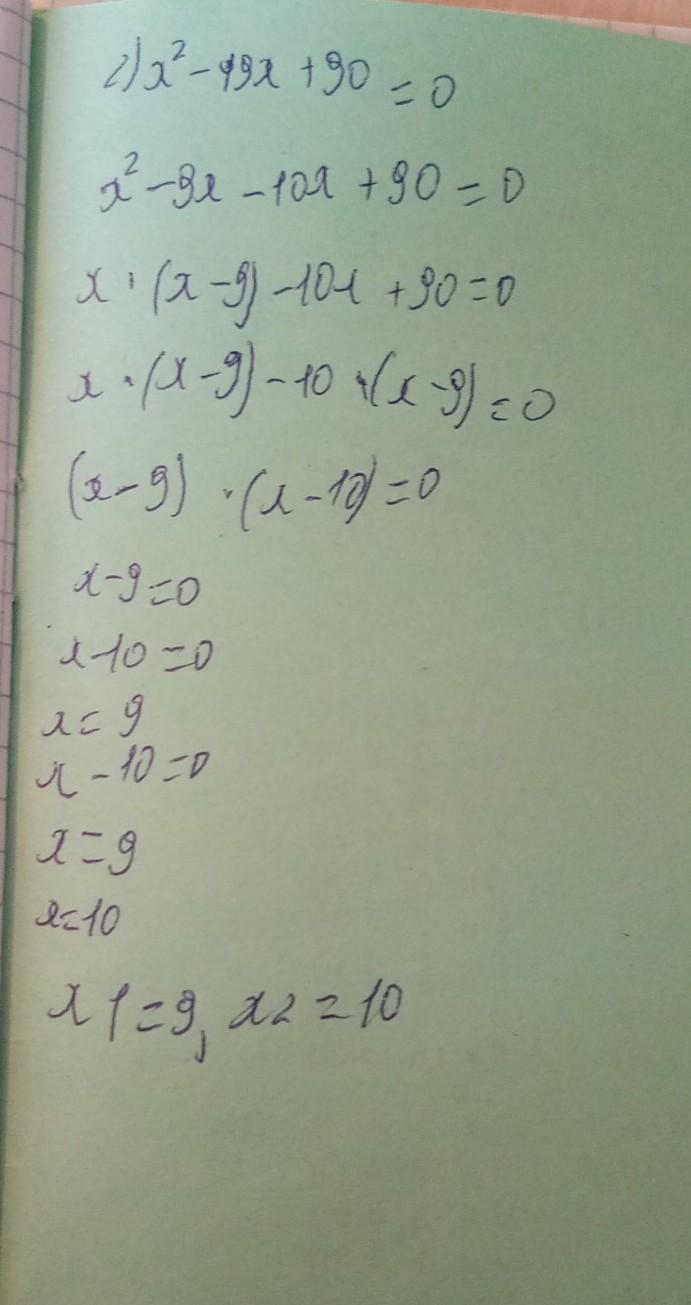 2) x² - 19x + 90 = 0
x² - 9x - 10x + 90 = 0
x · (x - 9) - 10x + 90 = 0
x · (x - 9) - 10 · (x - 9) = 0
(x - 9) · (x - 10) = 0
x - 9 = 0
x - 10 = 0
x = 9
x - 10 = 0
x = 9
x = 10
x1 = 9, x2 = 10